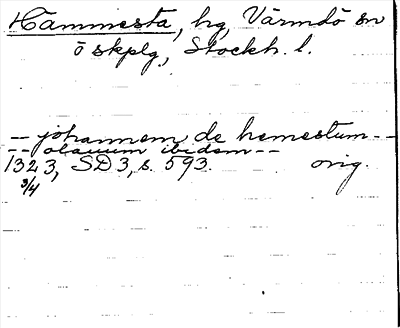 Hammesta, hg, Värmdö sn
ö skplg, Stockh. l.
-- johannem de hemestum --
-- olauum ibidem --
1323, SD 3, s. 593. orig.
3/4